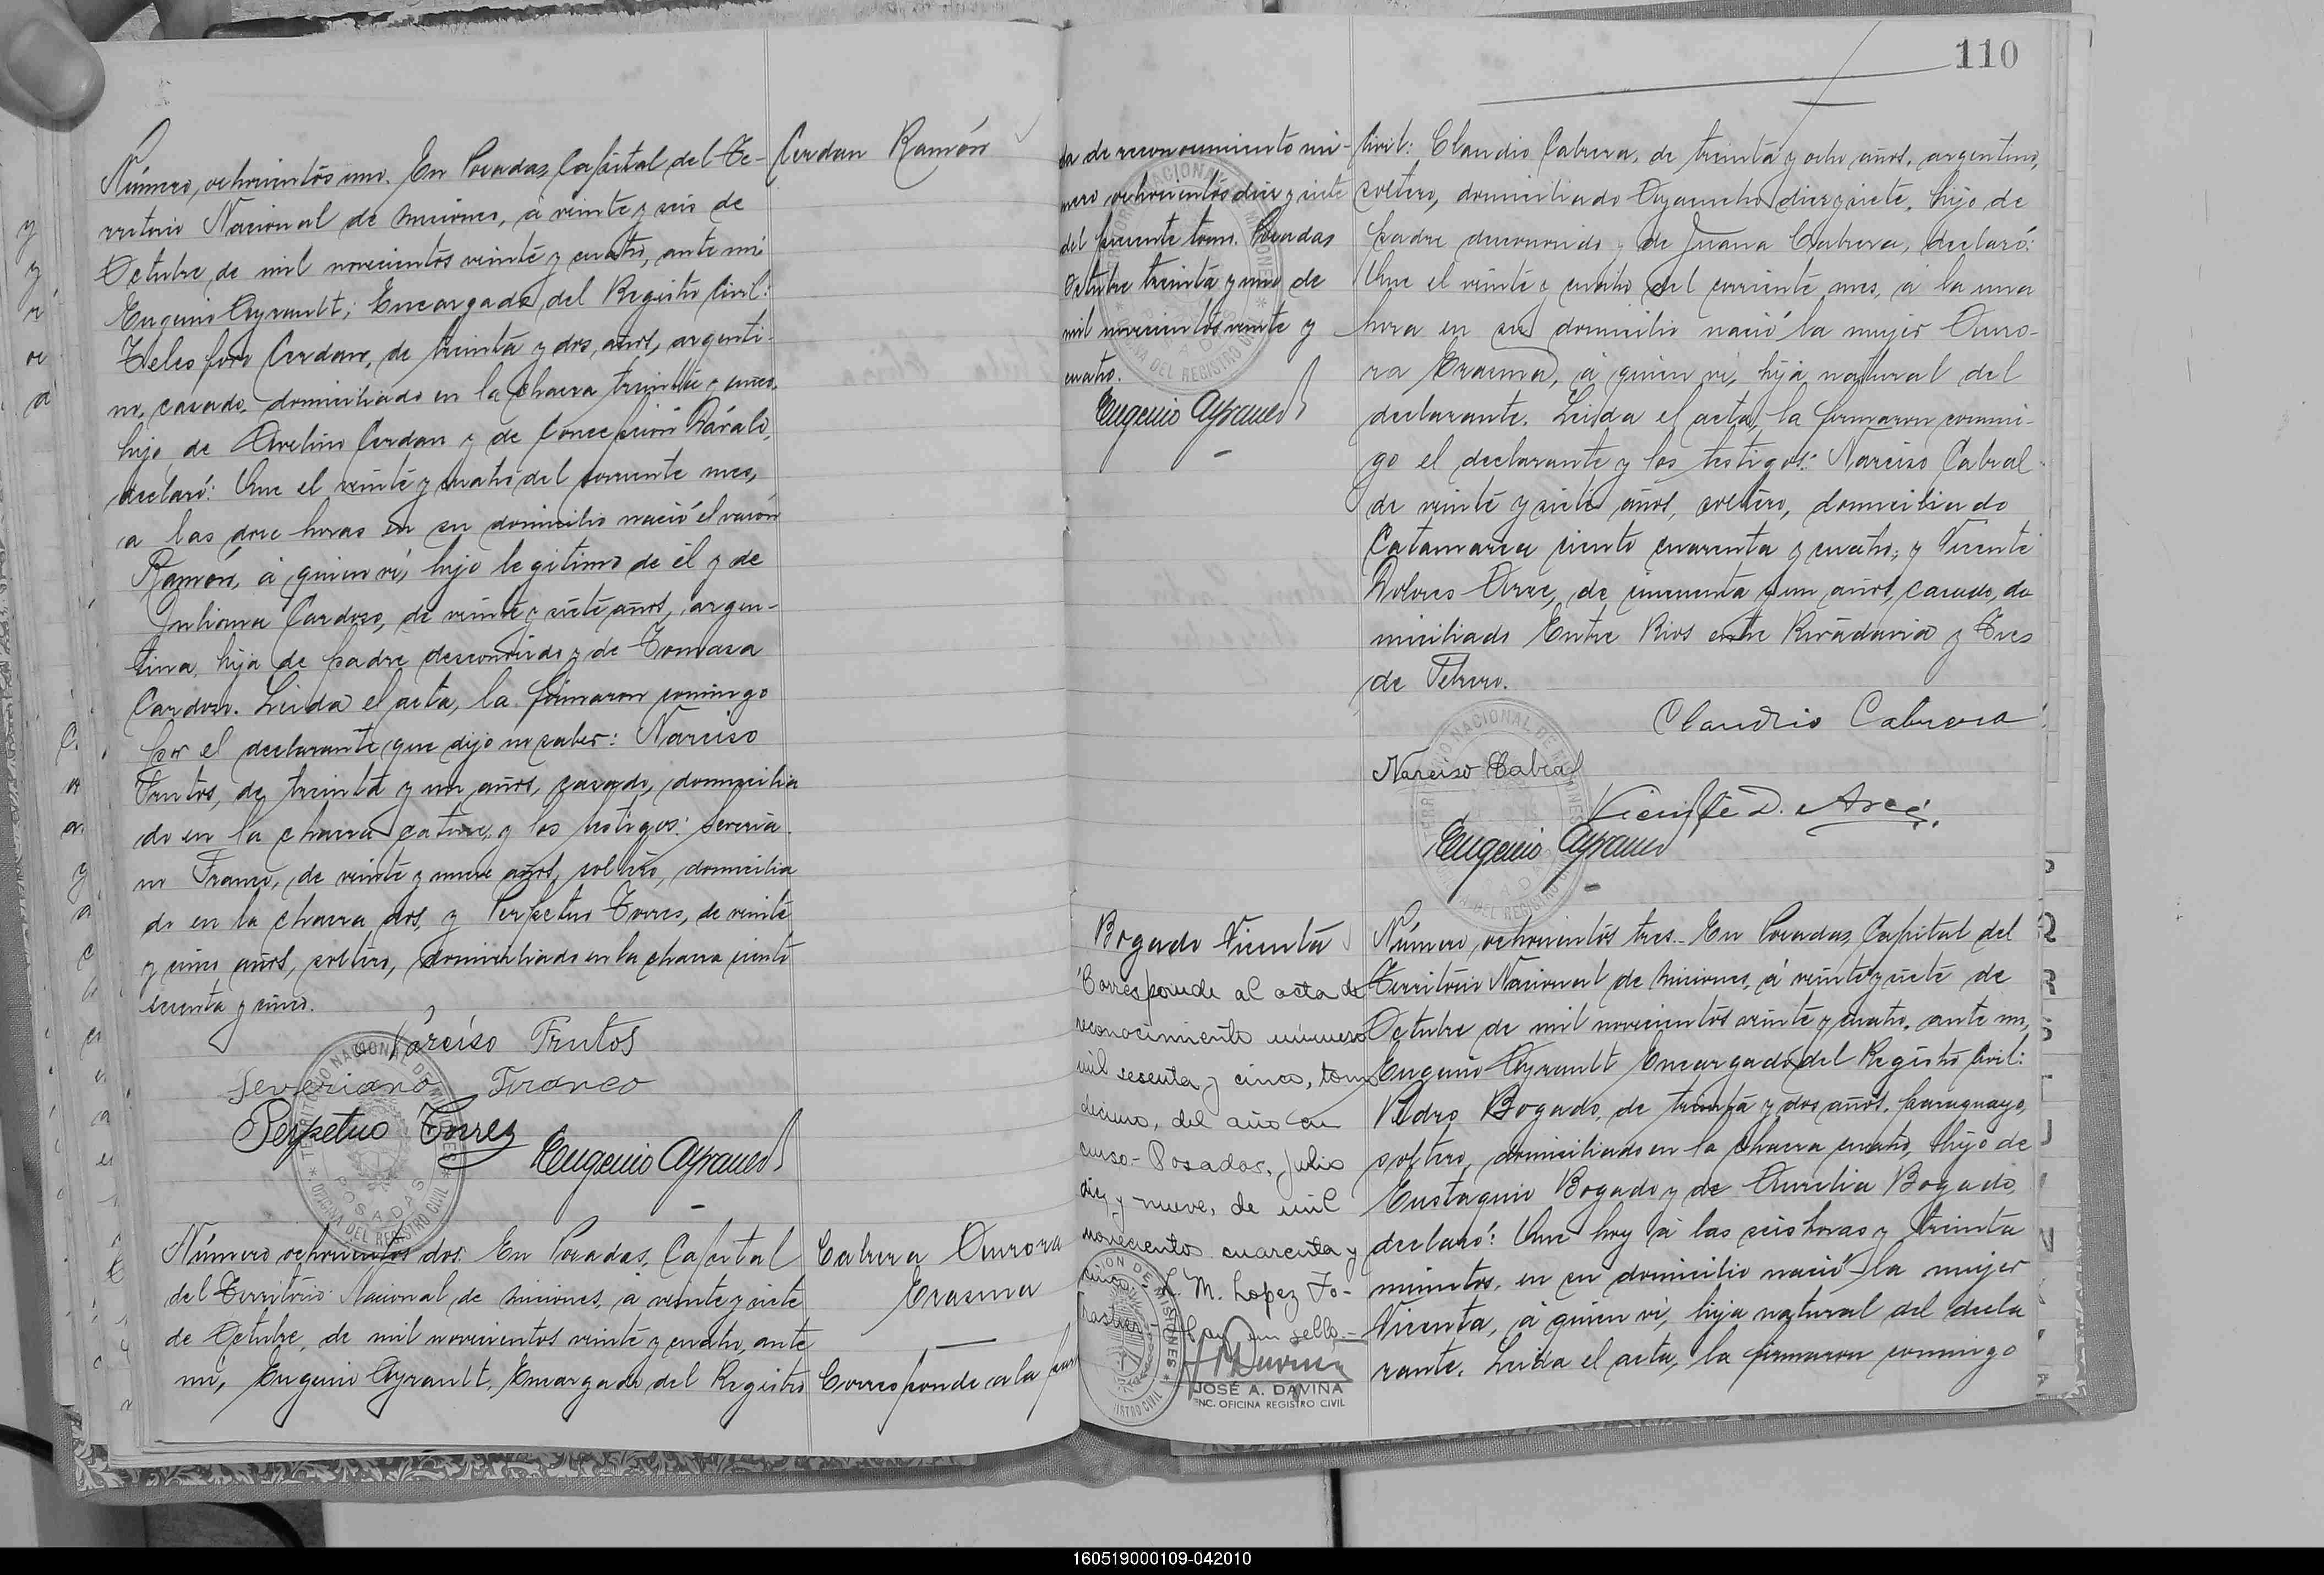 Número, ochocientos uno. En Posadas, Capital del Te-
rritorio Nacional de Misiones, á veinte y seis de
Octubre de mil novecientos veinte y cuatro, ante mí
Eugenio Ayrault; Encargado del Registro Civil:
Telesforo Cerdan, de treinta y dos años, argenti-
no, casado, domiciliado en la chacra treinta y cinco,
hijo de Avelino Cerdan y de Concepción
declaró: Que el veinte y cuatro del corriente mes,
a las doce horas en su domicilio nació el varón
Ramón, á quien ví, hijo legitimo de él y de
Juliana Cardoso, de veinte y siete años, argen-
tina, hija de padre desconocido y de Tomasa
Cardoso. Leida el acta, la firmaron conmigo
por el declarante que dijo no saber: Narciso
Frutos, de treinta y un años, casado, domicilia
do en la chacra catorce, y los testigos: Severia
no Franco, de veinte y nueve años, soltero, domicilia
do en la chacra dos, y Perpetuo Torres, de veinte
y cinco años, soltero, domiciliado en la chacra ciento
sesenta y cinco.
Narciso Frutos
Severiano Franco
Perpetuo Torrez
Eugenio Ayrault
TERRITORIO NACIONAL DE MISIONES
POSADAS
OFICINA DEL REGISTRO CIVIL
Cerdan Ramón
Número ochocientos dos. En Posadas, Capital
del Territorio Nacional de Misiones, á veinte y siete
de Octubre, de mil novecientos veinte y cuatro, ante
mí, Eugenio Ayrault, Encargado del Registro
Cabrera Aurora
Erasma
Corresponde a la par
110
tida de reconocimiento nú-
mero ochocientos diez y siete
del presente tomo. Posadas
Octubre treinta y uno de
mil novecientos veinte y
cuatro.
Eugenio Ayrault
Civil: Claudio Cabrera, de treinta y ocho años, argentino,
soltero, domiciliado Ayacucho diez y siete, hijo de
padre desconocido y de Juana Cabrera, declaró:
Que el veinte y cuatro del corriente mes, á la una
hora en su domicilio nació la mujer Auro-
ra Erasma, á quien ví, hija natural del
declarante. Leida el acta, la firmaron conmi-
go el declarante y los testigos: Narciso Cabral
de veinte y siete años, soltero, domiciliado
Catamarca ciento cuarenta y cuatro; y Vicente
Dolores Arce, de cincuenta y un años, casado, do
miciliado Entre Rios entre Rivadavia y Tres
de Febrero.
Claudio Cabrera
Narciso Cabral
Vicente D. Arce
Eugenio Ayrault
Bogado Vicenta
Corresponde al acta de
reconocimiento número
mil sesenta y cinco, tomo
décimo, del año en
curso.- Posadas, Julio
diez y nueve, de mil
novecientos cuarenta y
cinco. M. Lopez Fo-
rastier. Hay un sello.-
JOSÉ A. DAVIÑA
ENC. OFICINA REGISTRO CIVIL
Número, ochocientos tres.- En Posadas, Capital del
Territorio Nacional de Misiones, á veinte y siete de
Octubre de mil novecientos veinte y cuatro, ante mí,
Eugenio Ayrault Encargado del Registro Civil:
Pedro Bogado, de treinta y dos años, paraguayo,
soltero, domiciliado en la chacra cuatro, hijo de
Eustaquio Bogado y de Aurelia Bogado,
declaró: Que hoy á las seis horas y treinta
minutos, en su domicilio nació la mujer
Vicenta, á quien ví, hija natural del decla
rante. Leida el acta, la firmaron conmigo
160519000109-042010